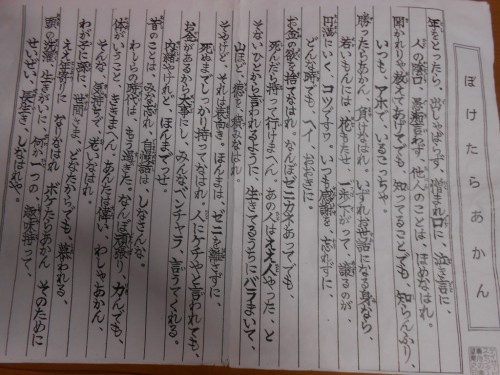 ぼけたらあかん
年をとったら 出しゃばらず 憎まれ口に 泣き言に
人のかげ口 愚痴言わず 他人のことは ほめなはれ
聞かれりゃ教えてあげても 知ってることでも 知らんふり
いつも アホで いるこっちゃ
勝ったらあかん 負けなはれ いずれお世話になる身なら
若いもんには 花もたせ 一歩下がって 譲るのが
円満にいく コツですわ いつも感謝を 忘れずに
どんな時でも へー おおきに
お金の欲を 捨てなはれ なんぼゼニカネあっても
死んだら持って行けまへん あの人はええ人やった と
そないに ひとから言われるように 生きてるうちにバラまいて
山ほど 徳を 積みなはれ
そやけど それは表向き ほんまは ゼニを離さずに
死ぬまでしっかり 持ってなはれ 人にケチやと 言われても
お金があるから 大事にし みんな ベンチャラ 言うてくれる
内緒やけれど ほんまでっせ
昔のことは みな忘れ 自慢話は しなさんな
わしらの時代は もう過ぎた なんぼ頑張り 力んでも
体がいうこと ききまへん あんたは偉い わしゃあかん
そんな気持ちで 老いなはれ
わが子に孫に 世間さま どなたからでも 慕われる
ええ年寄りに なりなはれ ボケたらあかん そのために
頭の洗濯 生きがいに 何か一つの 趣味持って
せいぜい 長生き しなはれや